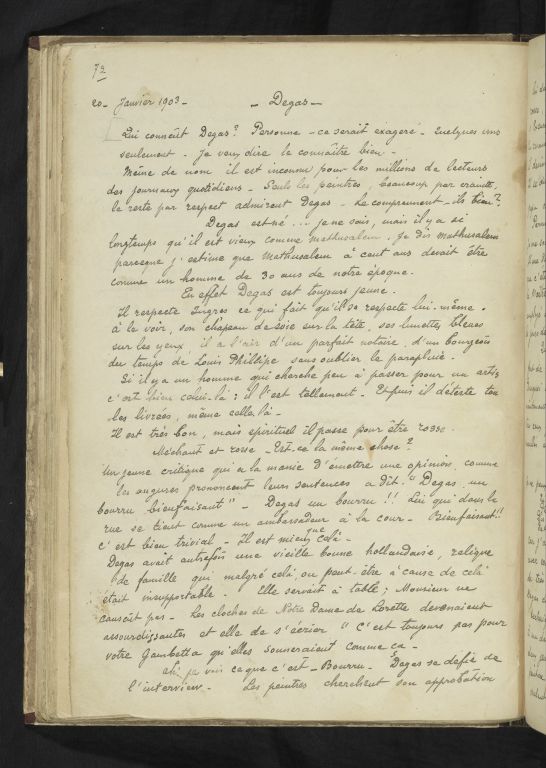 72
20 - Janvier 1903 - - Degas -
Qui connait Degas? Personne - ce serait exagéré - Quelques uns
seulement - Je veux dire le connaître bien -
Même de nom il est inconnu pour les millions de lecteurs
des journaux quotidiens - Seuls les peintres, beaucoup par crainte,
le reste par respect admirent Degas - Le comprennent-ils bien?
Degas est né ... je ne sais, mais il y a si
longtemps qu'il est vieux comme Mathusalem. Je dis Mathusalem
parceque j'estime que Mathusalem à cent ans devait être
comme un homme de 30 ans de notre époque.
En effet Degas est toujours jeune.
Il respecte Ingres ce qui fait qu'il se respecte lui-même.
à le voir, son chapeau de soie sur la tête, ses lunettes bleues
sur les yeux il a l'air d'un parfait notaire, d'un bourgeois
du temps de Louis Phillipe sans oublier le parapluie.
Si il y a un homme qui cherche peu à passer pour un artis
c'est bien celui-là: il l'est tellement. Et puis il déteste tou
les livrées, même celle là -
Il est très bon, mais spirituel il passe pour être rosse.
Méchant et rosse - Est-ce la même chose?
Un jeune critique qui a la manie d'émettre une opinion, comme
les augures prononcent leurs sentences a dit: "Degas, un
bourru bienfaisant" - Degas un bourru!! Lui qui dans la
rue se tient comme un ambassadeur à la cour - Bienfaisant!!
c'est bien trivial - Il est mieux que celà -
Degas avait autrefois une vieille bonne hollandaise, relique
de famille qui malgré celà, ou peut-être à cause de celà
était insupportable. Elle servait à table; Monsieur ne
causait pas - Les cloches de Notre Dame de Lorette devenaient
assourdissantes et elle de s'écrier "C'est toujours pas pour
votre Gambetta qu'elles sonneraient comme ça -
Ah! je vois ce que c'est - Bourru - Degas se défie de
l'interview. Les peintres cherchent son approbation